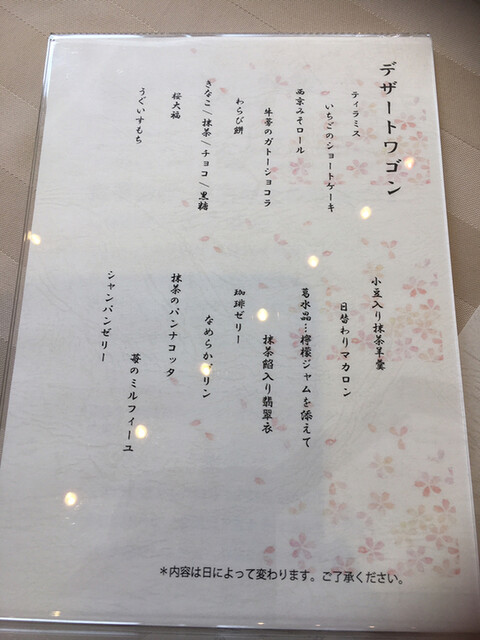 デザートワゴン
ティラミス
いちごのショートケーキ
西京みそロール
牛蒡のガトーショコラ
わらび餅
きなこ/抹茶/チョコ/黒糖
桜大福
うぐいすもち
小豆入り抹茶羊羹
日替わりマカロン
葛水晶…檸檬ジャムを添えて
抹茶餡入り翡翠衣
珈琲ゼリー
なめらかプリン
抹茶のパンナコッタ
苺のミルフィーユ
シャンパンゼリー
*内容は日によって変わります。ご了承ください。